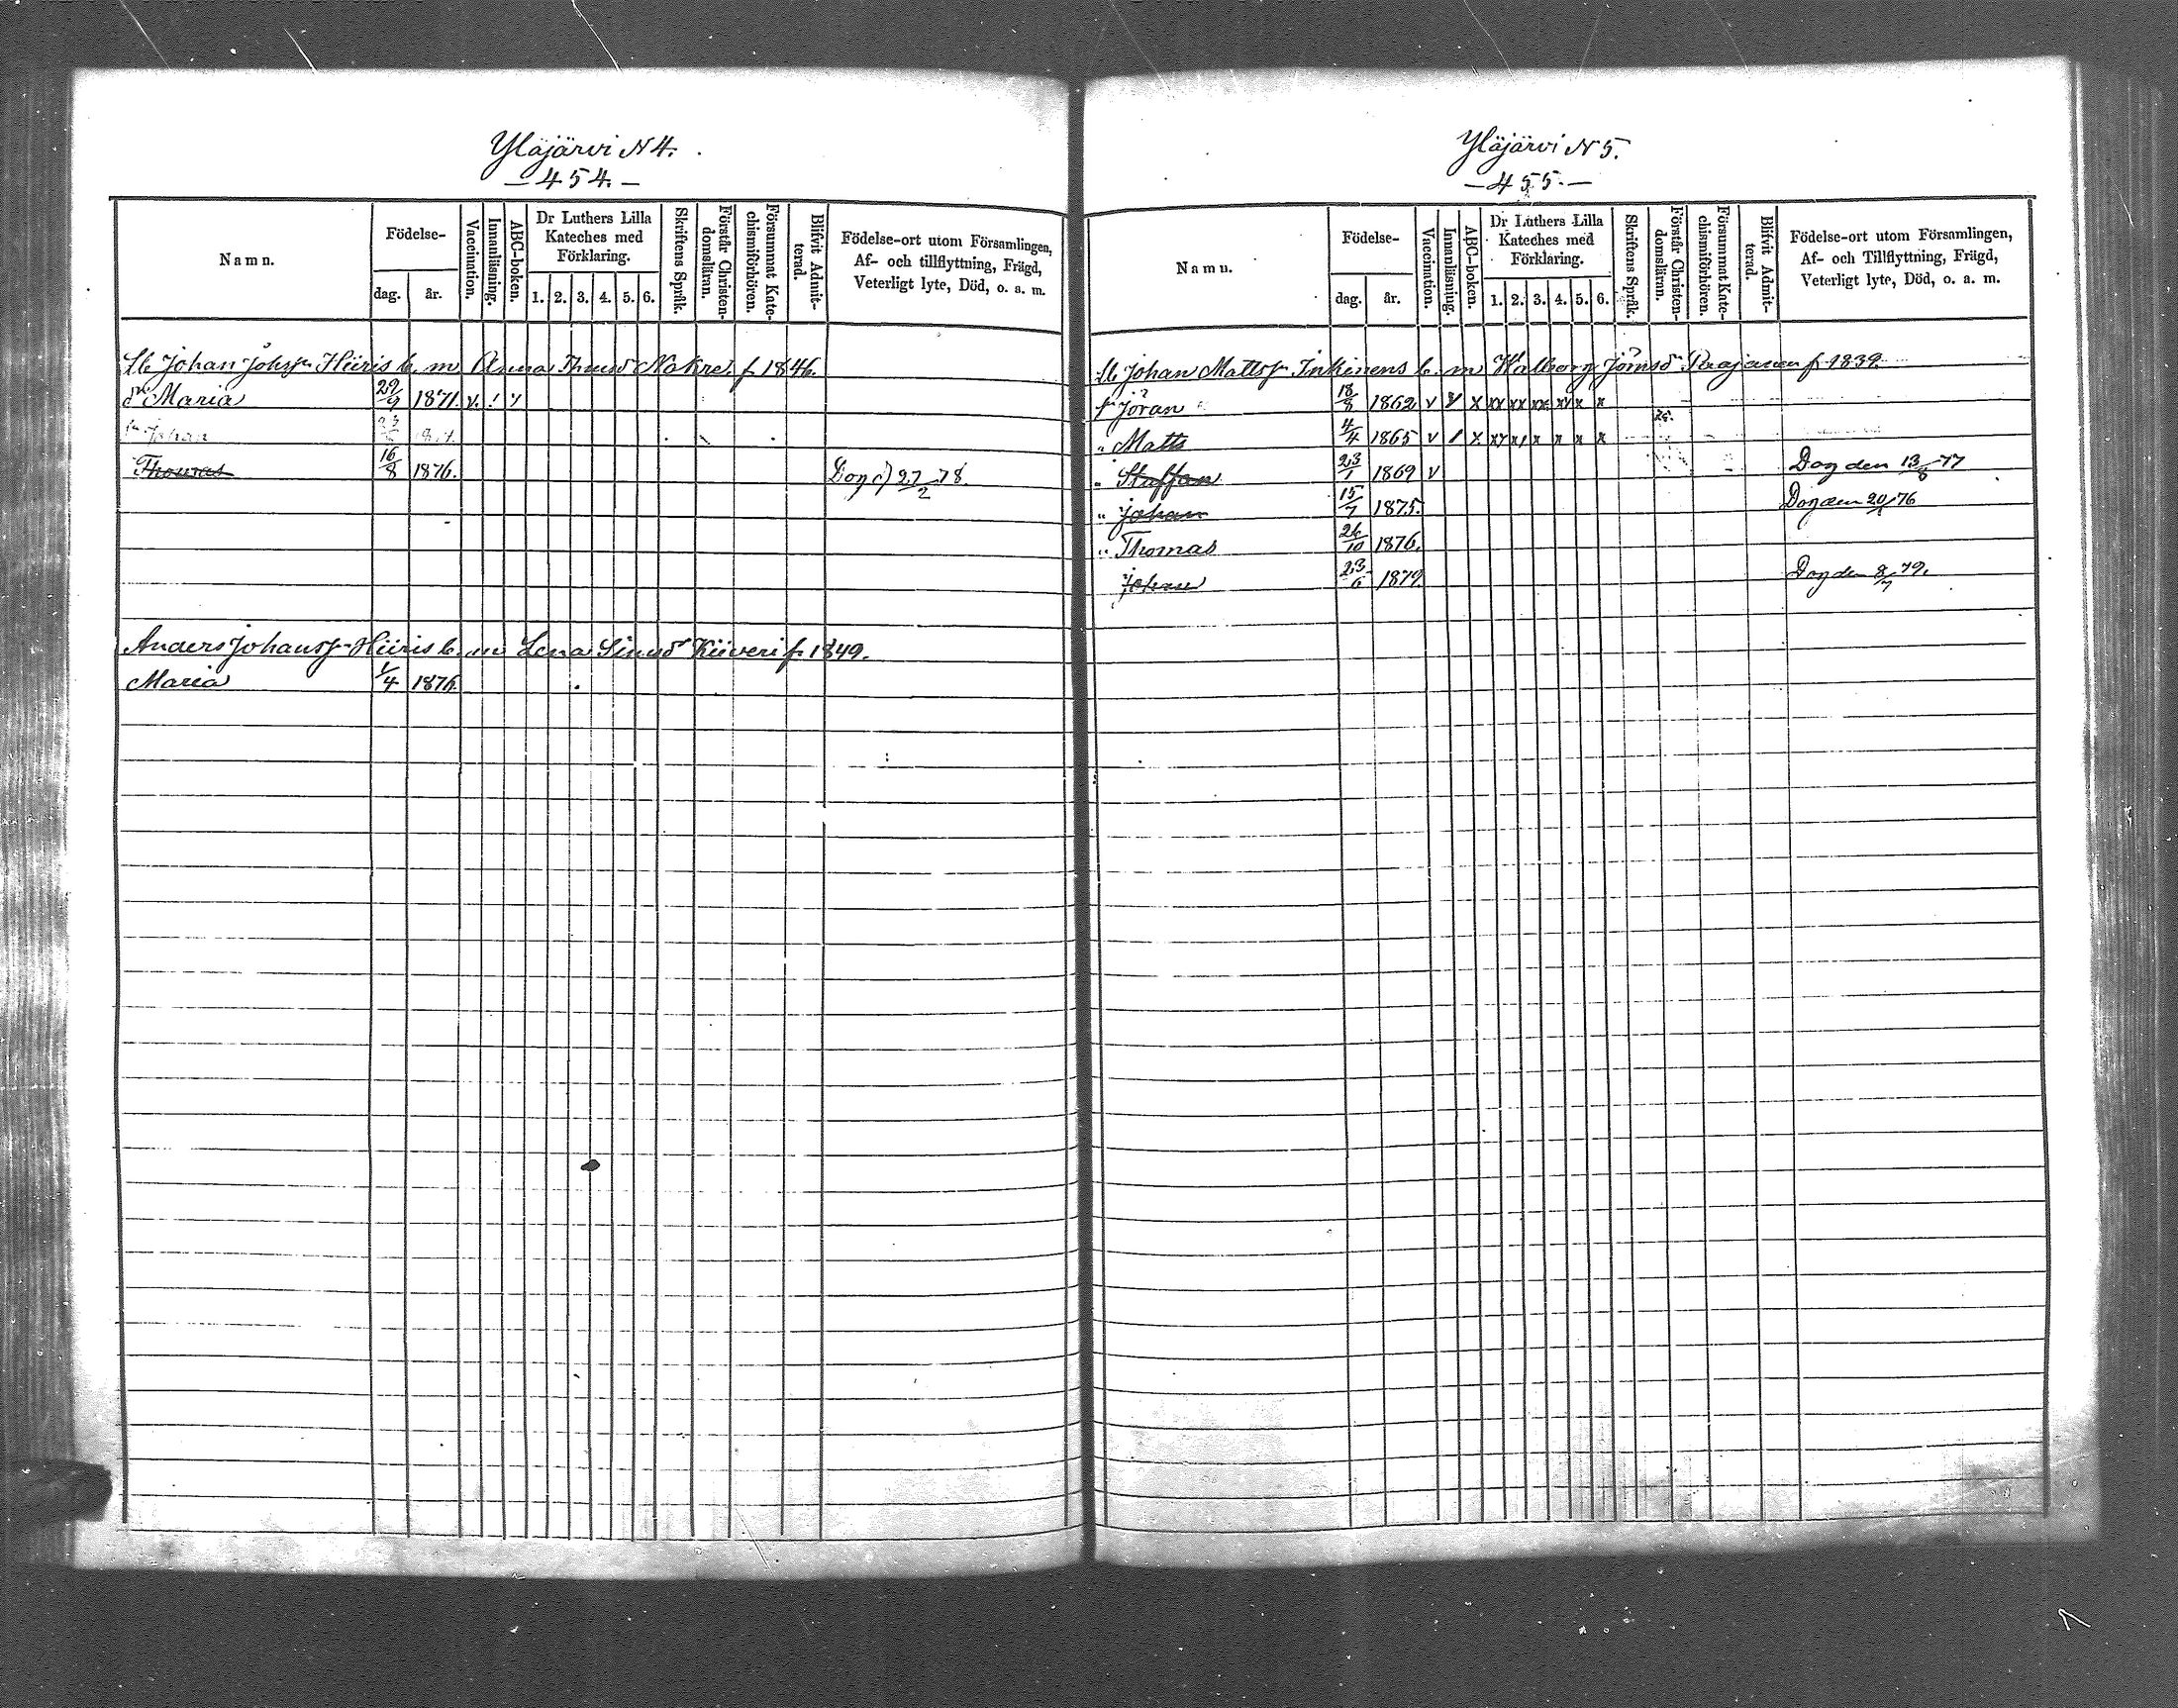 Yläjärvi N 4.
— 454. —
Namn.
Födelse-
dag.
år.
Vaccination.
Innanläsning.
ABC-boken.
Dr Luthers Lilla
Kateches med
Förklaring.
1. 2. 3. 4. 5. 6.
Skriftens Språk.
Förstår Christen-
domsläran.
Försummat Kate-
chismiförhören.
Blifvit Admit-
terad.
Födelse-ort utom Församlingen,
Af- och tillflyttning, Frägd,
Veterligt lyte, Död, o. a. m.
Johan Johss Hiiris b. m. Anna Thmsd f. 1846.
dr Maria 1871. v.
sn Johan
Thomas 16/8 1876. Dog d 27/2 78.
Anders Johanss Hiiris b. m Lena Simsd Kiiveri f. 1849.
Maria 1/4 1876.
Yläjärvi N 5.
— 455. —
Namn.
Födelse-
dag.
år.
Vaccination.
Innanläsning.
ABC-boken.
Dr Luthers Lilla
Kateches med
Förklaring.
1. 2. 3. 4. 5. 6.
Skriftens Språk.
Förstår Christen-
domsläran.
Försummat Kate-
chismiförhören.
Blifvit Admit-
terad.
Födelse-ort utom Församlingen,
Af- och Tillflyttning, Frägd,
Veterligt lyte, Död, o. a. m.
Johan Mattss Inkinens b. m Walborg Jömsd f. 1839.
Jöran 18/8 1862 v v x xx xx xx xv x x
" Matts 4/4 1865 v / x xx x x x x x
" Staffan 23/1 1869 v Dog den 13/8 77
" Johan 15/7 1875. Dog den 76
" Thomas 26/10 1876.
Johan 23/6 1879. Dog den 8/7 79.